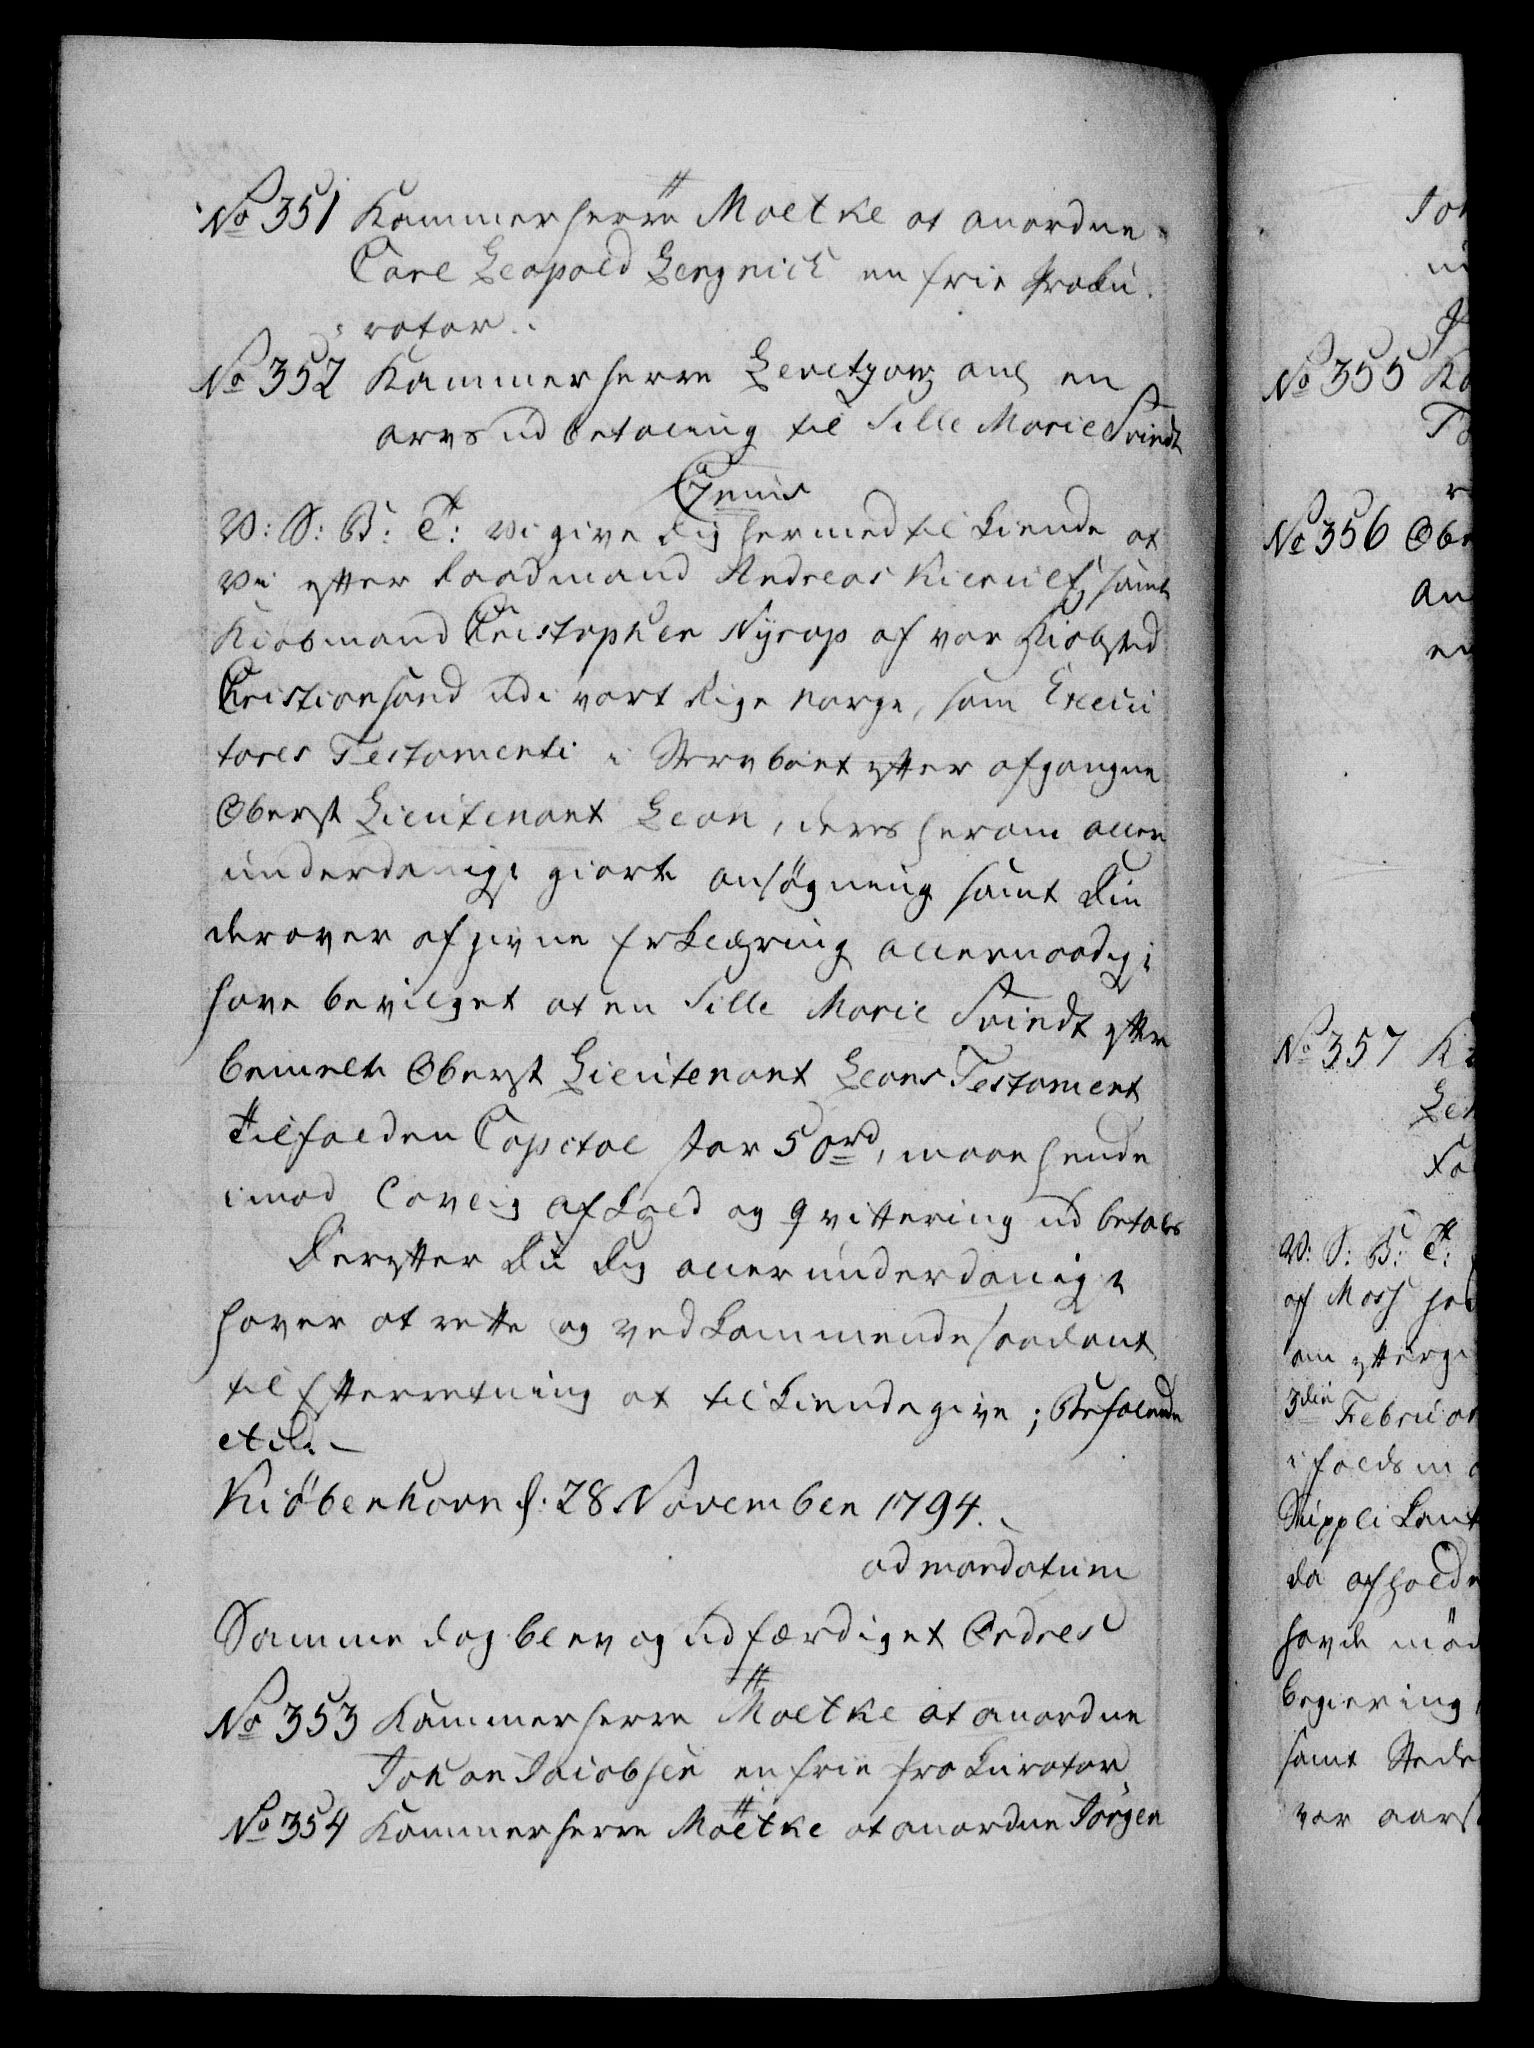 No 351 Kammerherre Moltke at anordne
Carl Leopold Lengnick en frie Proku
rator.
No 352 Kammerherre Levetzow ang en
arvs udbetaling til Sille Marie Svindt
Genius
V: S: B: T: Vi give dig hermed til kiende at
Vi efter Raadmand Andreas Kierulf samt
Kiøbmand Christopher Nyrop af vor Kiøbsted
Christiansand udi vort Rige Norge, som Execu
tores Testamenti i Sterboet efter afgangne
Oberst Lieutenant Leon, deres herom aller
underdanigst giorte ansøgning samt Din
derover afgivne Erklæring allernaadigst
have bevilget at en Sille Marie Svindt efter
bemelte Oberst Lieutenant Leons Testament
tilfalden Capital stor 50 rd, maae hende
imod lovlig afkald og qvittering udbetales
Derefter Du dig allerunderdanigst
haver at rette og vedkommende saadant
til Efterretning at tilkiendegive; Befalende
etc.
Kiöbenhavn d: 28 November 1794.
ad mandatum
Samme dag blev og udfærdiget Ordres
No 353 Kammerherre Moltke at anordne
Johan Jacobsen en frie Prokurator
No 354 Kammerherre Moltke at anordne Jörgen
No 355
No 356 Obe
an
No 357
V: S: B: T:
af Moss
om efterg
3die Februar
i
Suppli kant
da afholdn
havde mød
begiering
samt Stede
var aars